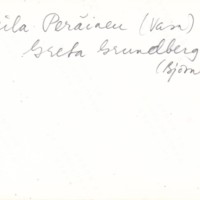 ila Peräinen (Vasa)
Greta Grundberg
(Björn